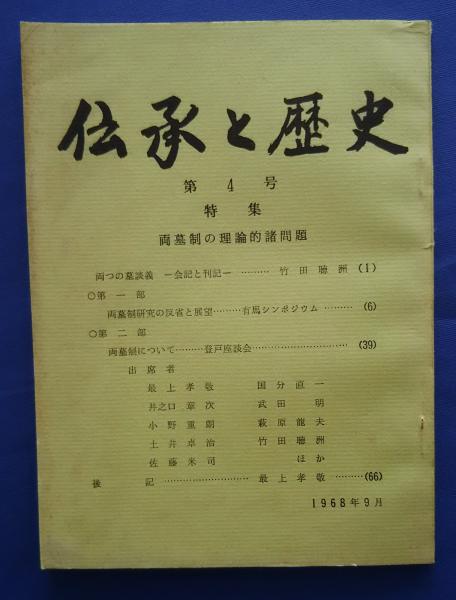 伝承と歴史
第4号
特集
両墓制の理論的諸問題
両つの墓談義 ー会記と刊記ー ……… 竹田聴洲 (1)
○第一部
両墓制研究の反省と展望………有馬シンポジウム ……… (6)
○第二部
両墓制について………登戸座談会………………………… (39)
出席者
最上孝敬 国分直一
井之口章次 武田明
小野重朗 萩原龍夫
土井卓治 竹田聴洲
佐藤米司 ほか
後記 ……………………… 最上孝敬 ………(66)
1968年9月